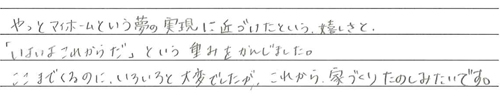 やっとマイホームという夢の実現に近づけたという、嬉しさと、
「いよいよこれからだ」という重みをかんじました。
ここまでくるのに、いろいろと大変でしたが、これから、家づくりたのしみたいです。